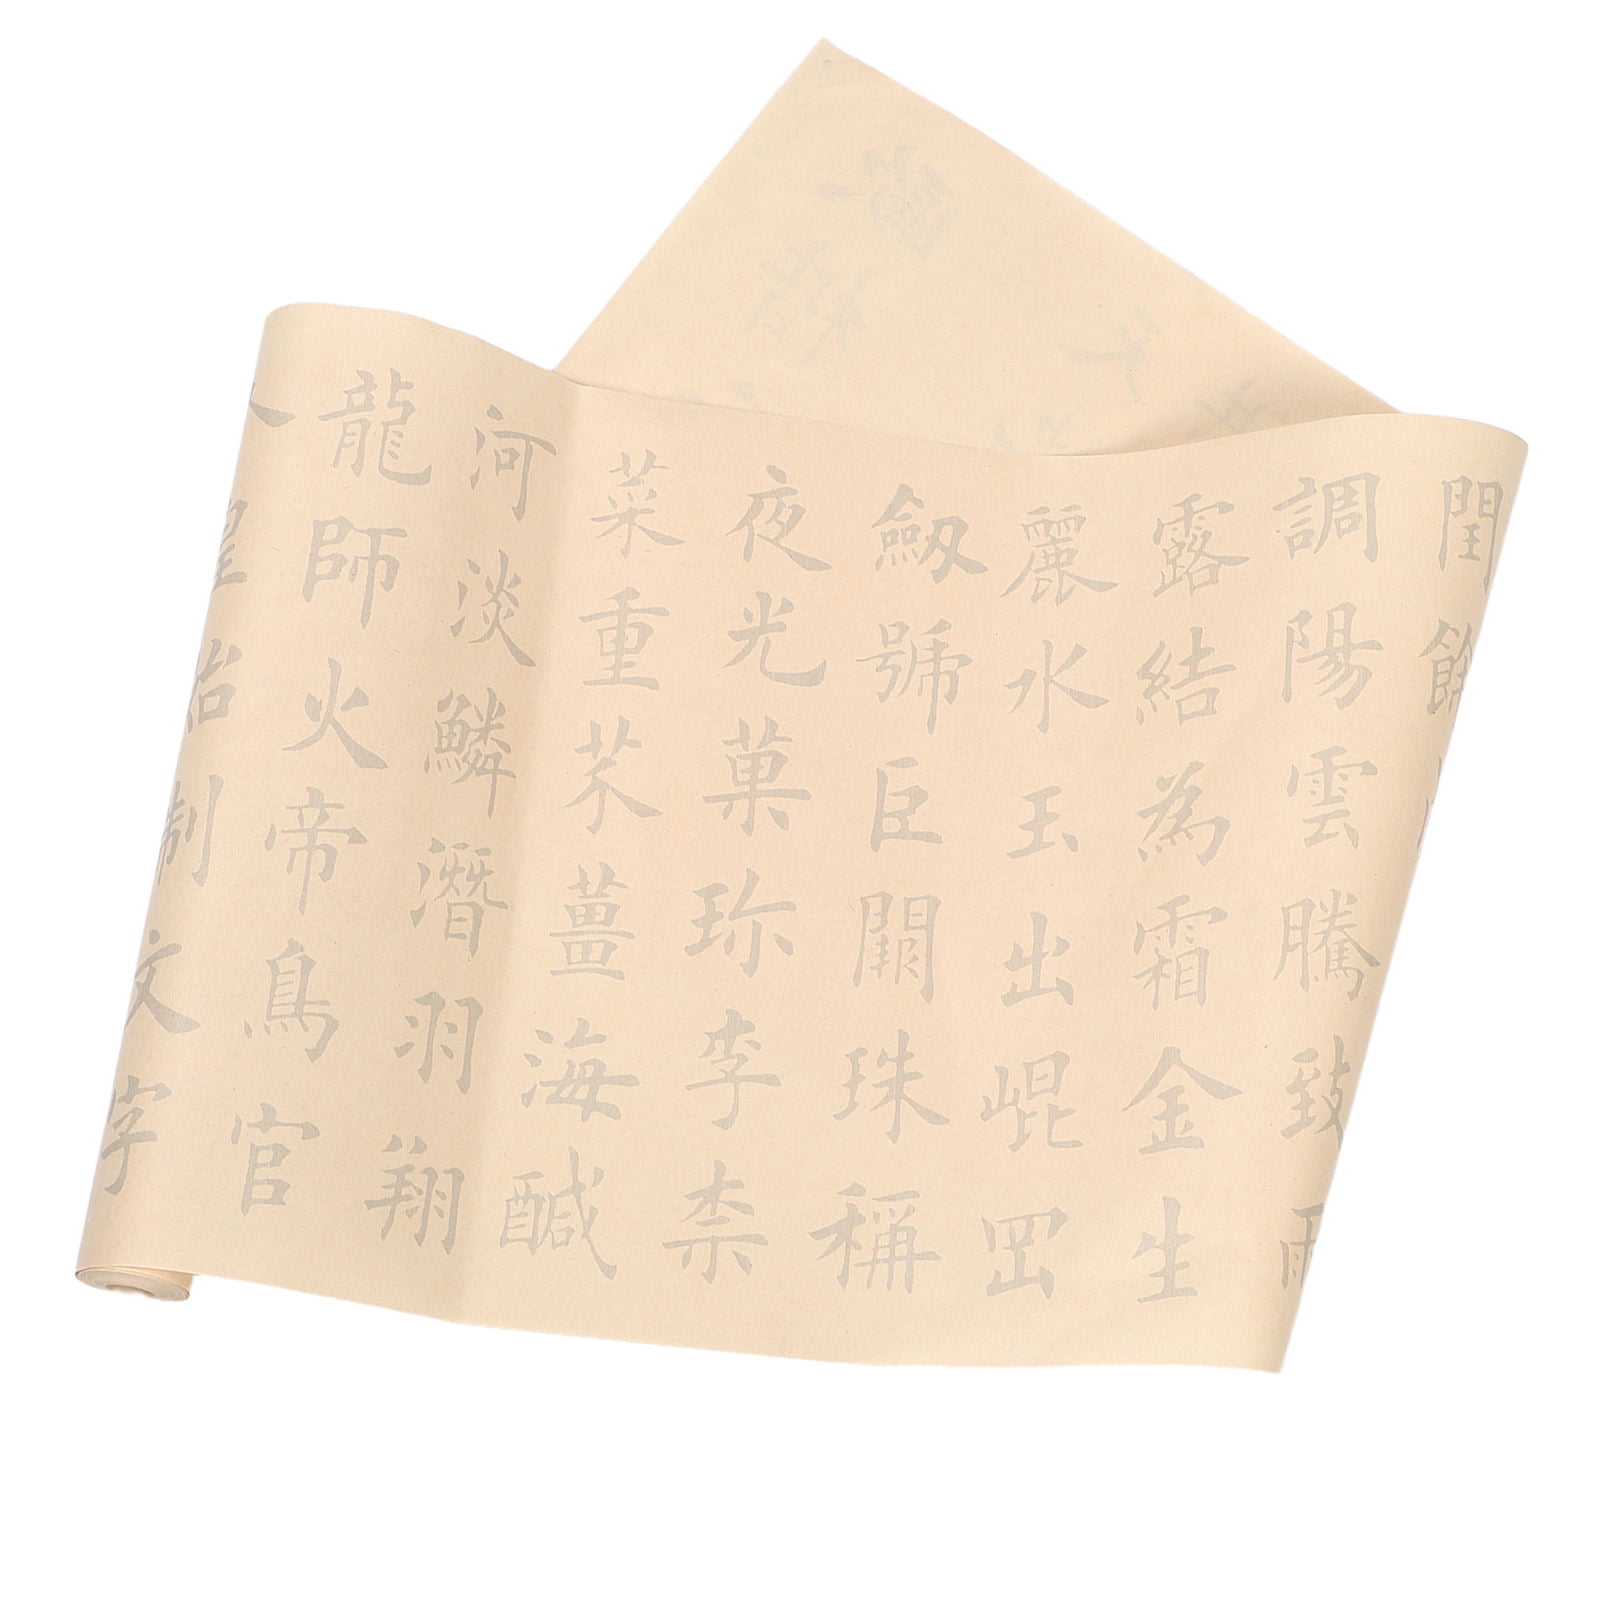 閏餘
調陽雲騰致雨
露結為霜金生
麗水玉出崐罡
劔號巨闕珠稱
夜光菓珎李柰
菜重芥薑海醎
河淡鱗潛羽翔
龍師火帝鳥官
人皇始制文字